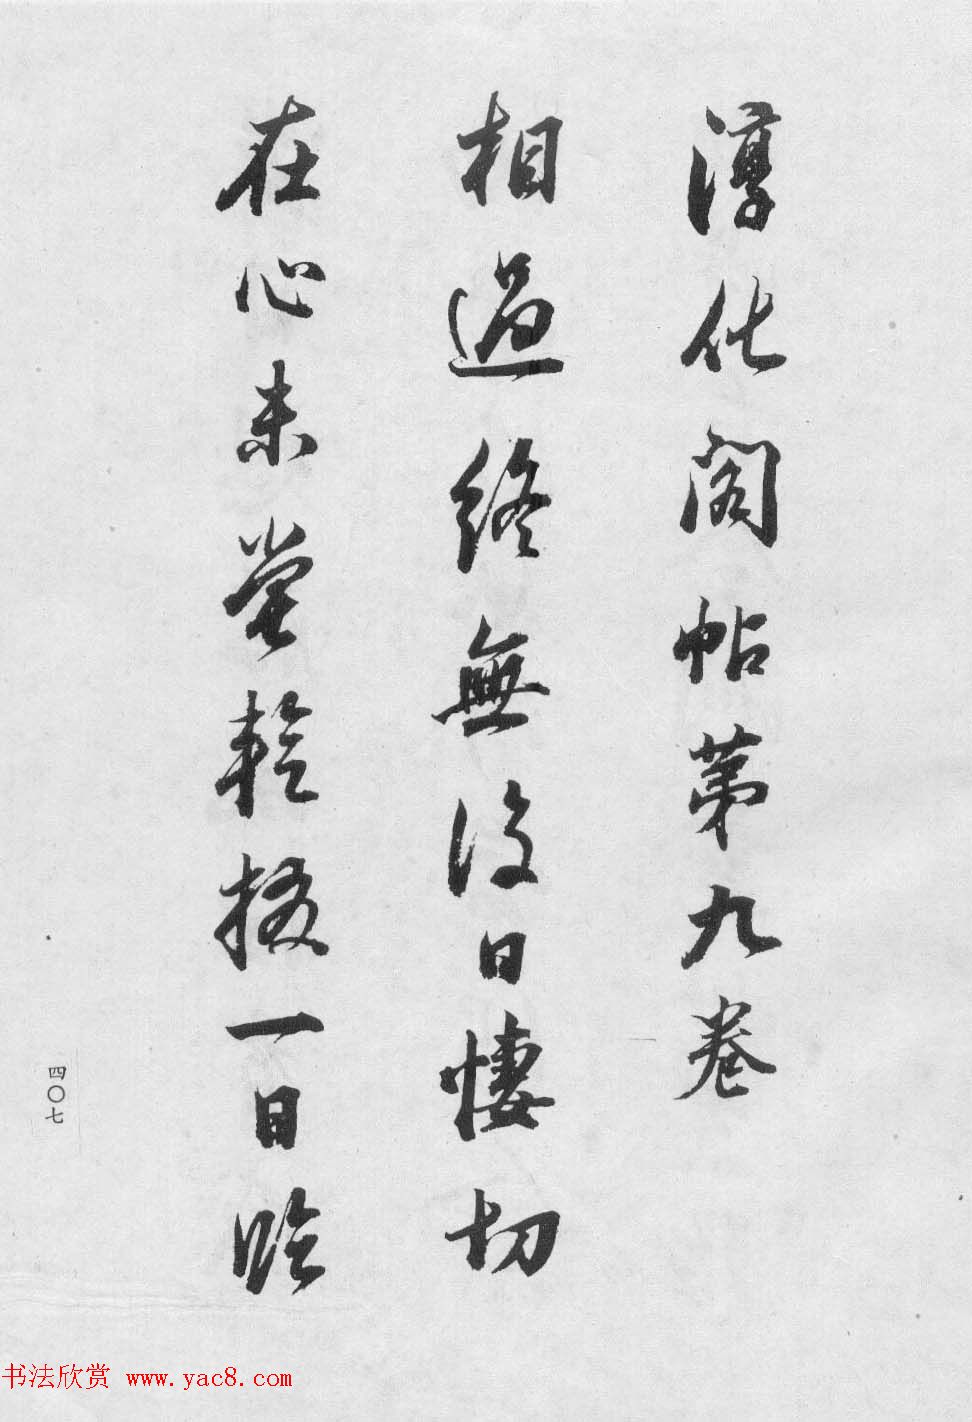 淳化阁帖第九卷
相過終無復日悽切
在心未嘗輟一日臨
四〇七
书法欣赏 www.yac8.com